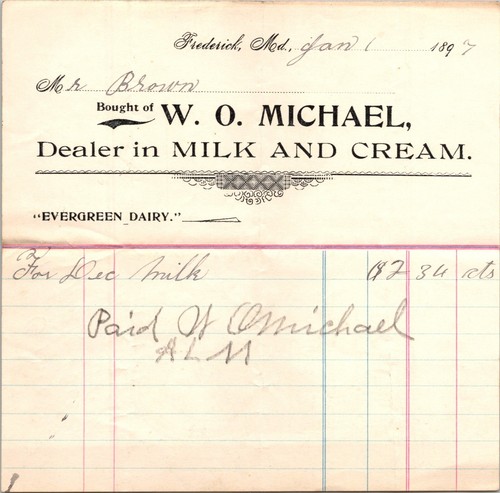 Frederick, Md., Jan 1 1897
Mr Brown
Bought of W. O. MICHAEL,
Dealer in MILK AND CREAM.
"EVERGREEN DAIRY."
For Dec milk $2 34 cts
Paid W O Michael
A L M